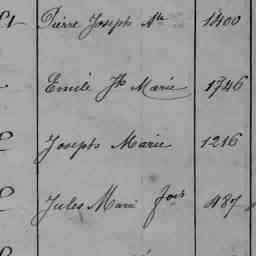 Pierre Joseph Ate 1400
Emile Jh Marie 1746
Joseph Marie 1216
Jules Marie fois 487